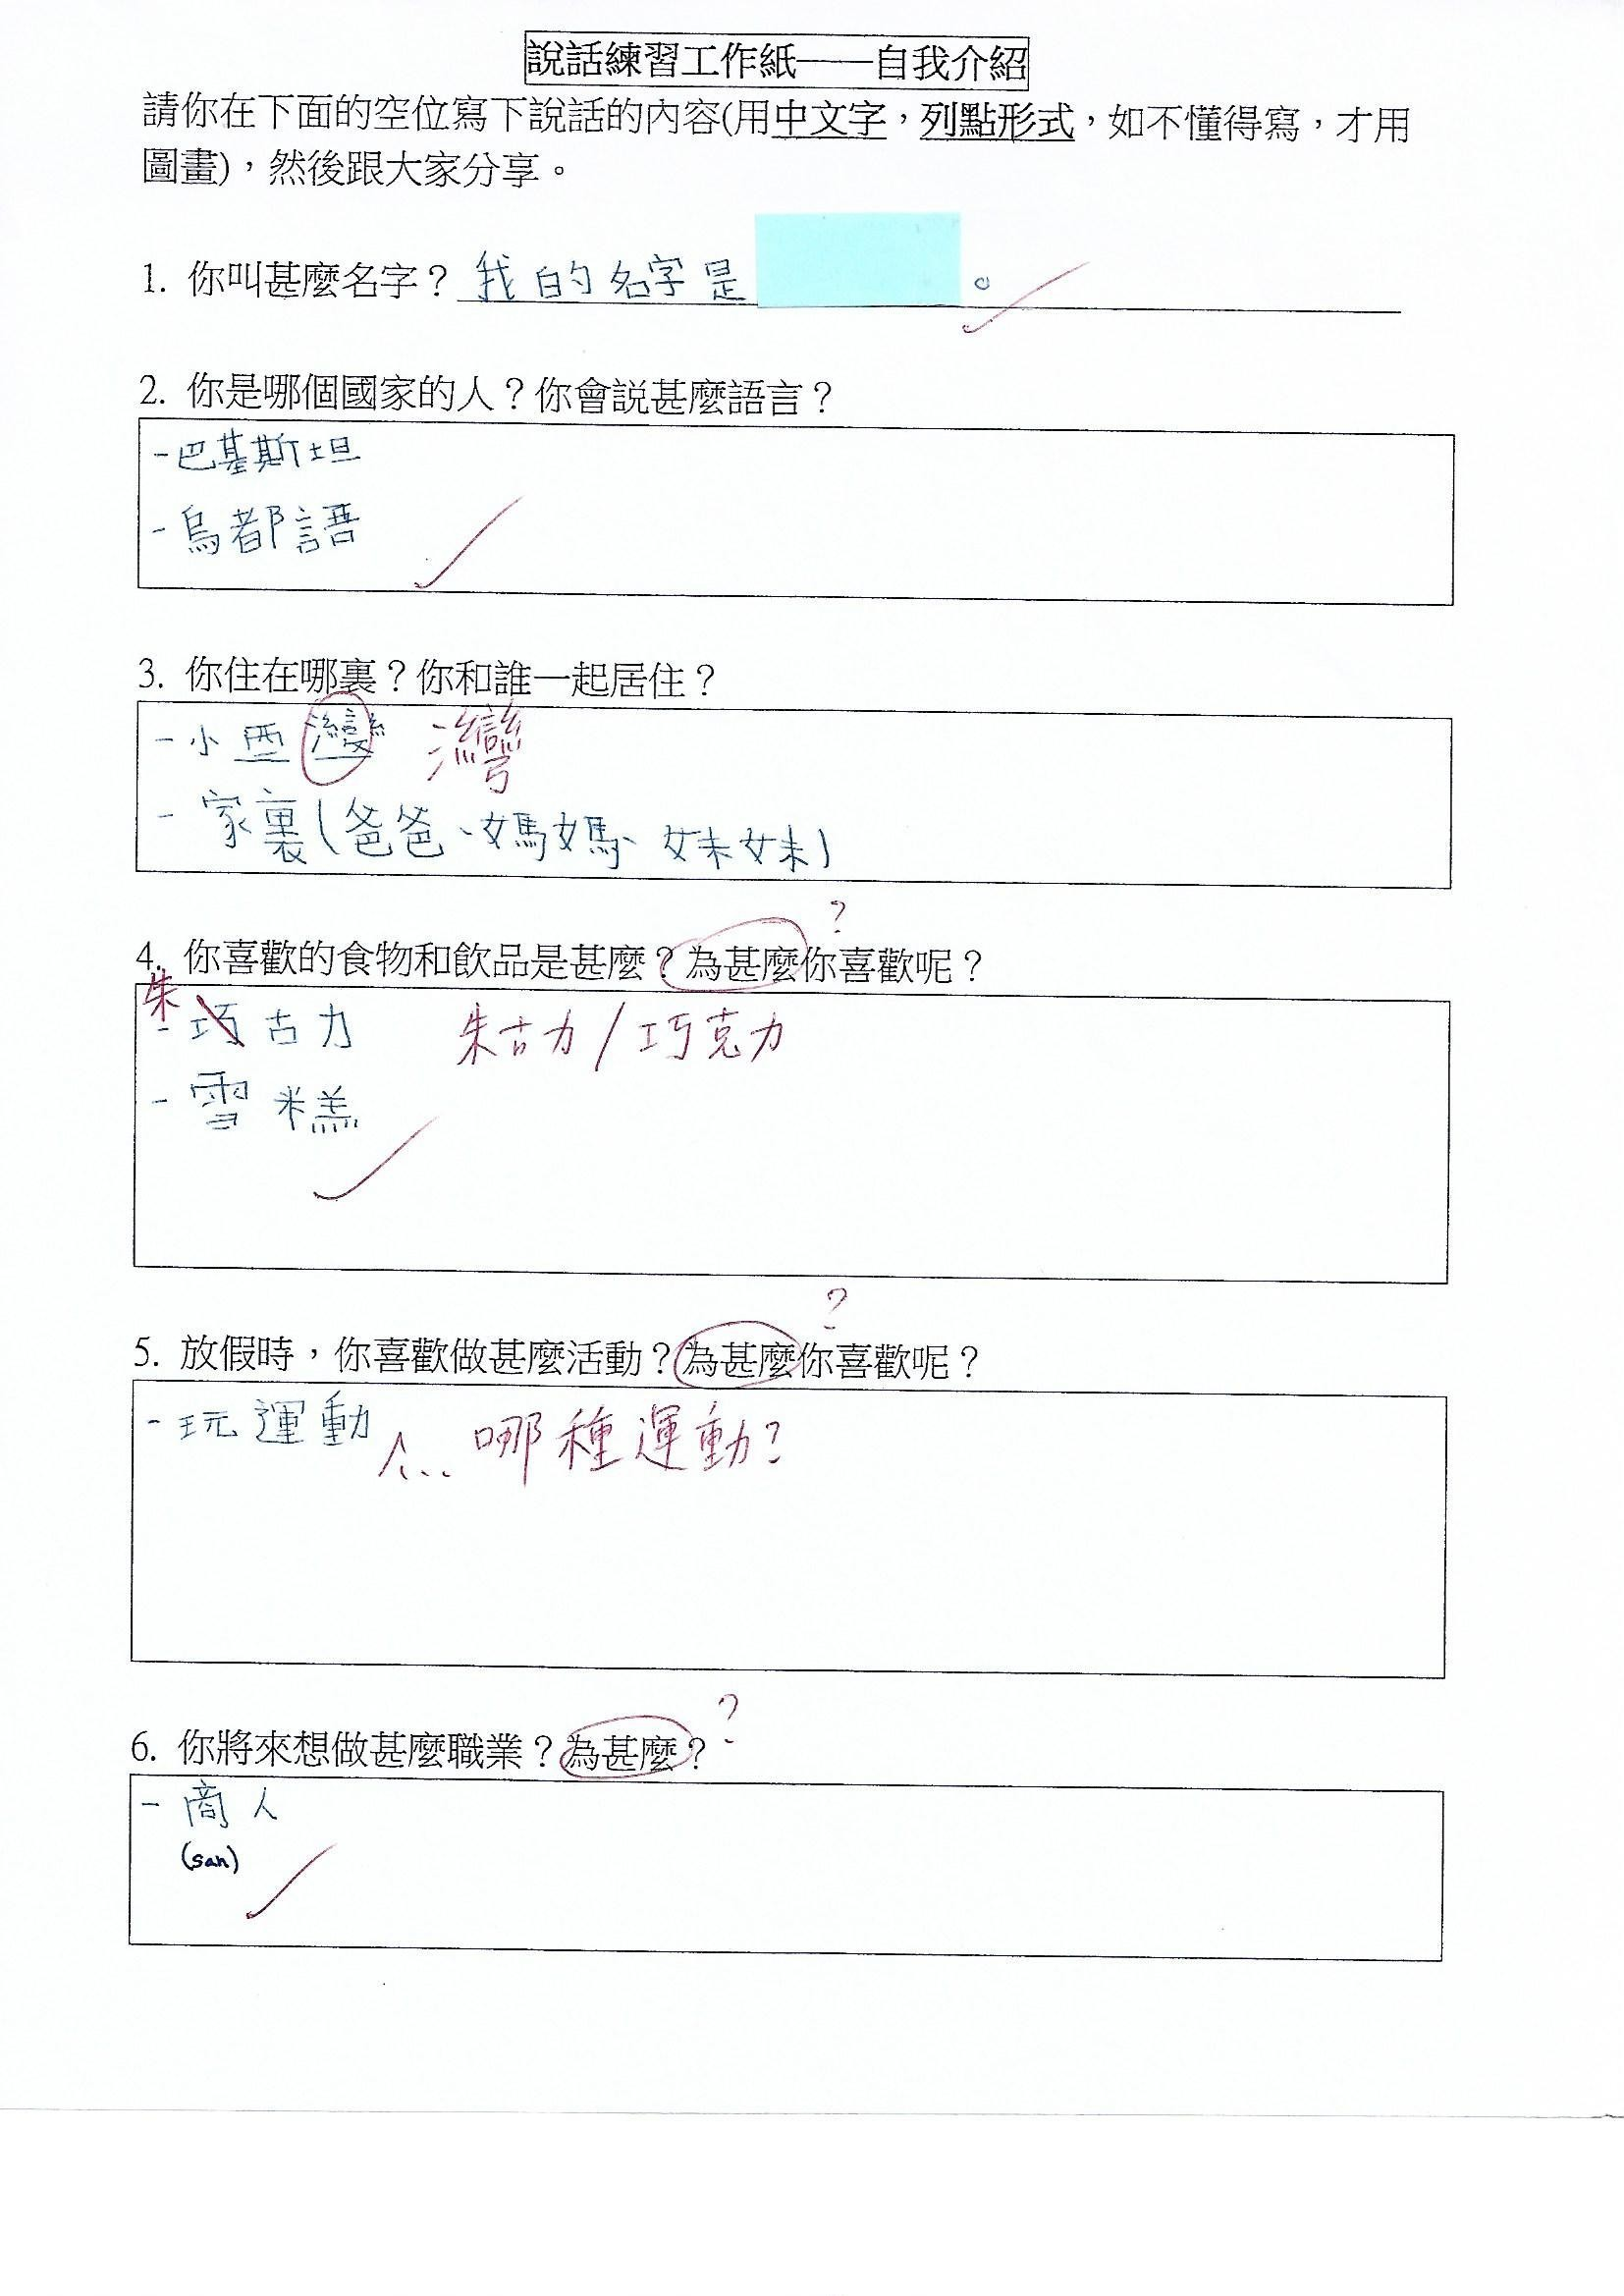 說話練習工作紙——自我介紹
請你在下面的空位寫下說話的內容(用中文字，列點形式，如不懂得寫，才用
圖畫)，然後跟大家分享。
1. 你叫甚麼名字？我的名字是 。
2. 你是哪個國家的人？你會説甚麼語言？
-巴基斯坦
-烏都語
3. 你住在哪裏？你和誰一起居住？
-小西灣 灣
-家裏(爸爸、媽媽、妹妹)
?
4. 你喜歡的食物和飲品是甚麼？為甚麼你喜歡呢？
朱
-巧古力 朱古力/巧克力
-雪糕
?
5. 放假時，你喜歡做甚麼活動？為甚麼你喜歡呢？
-玩運動 ... 哪種運動?
?
6. 你將來想做甚麼職業？為甚麼？
-商人
(san)